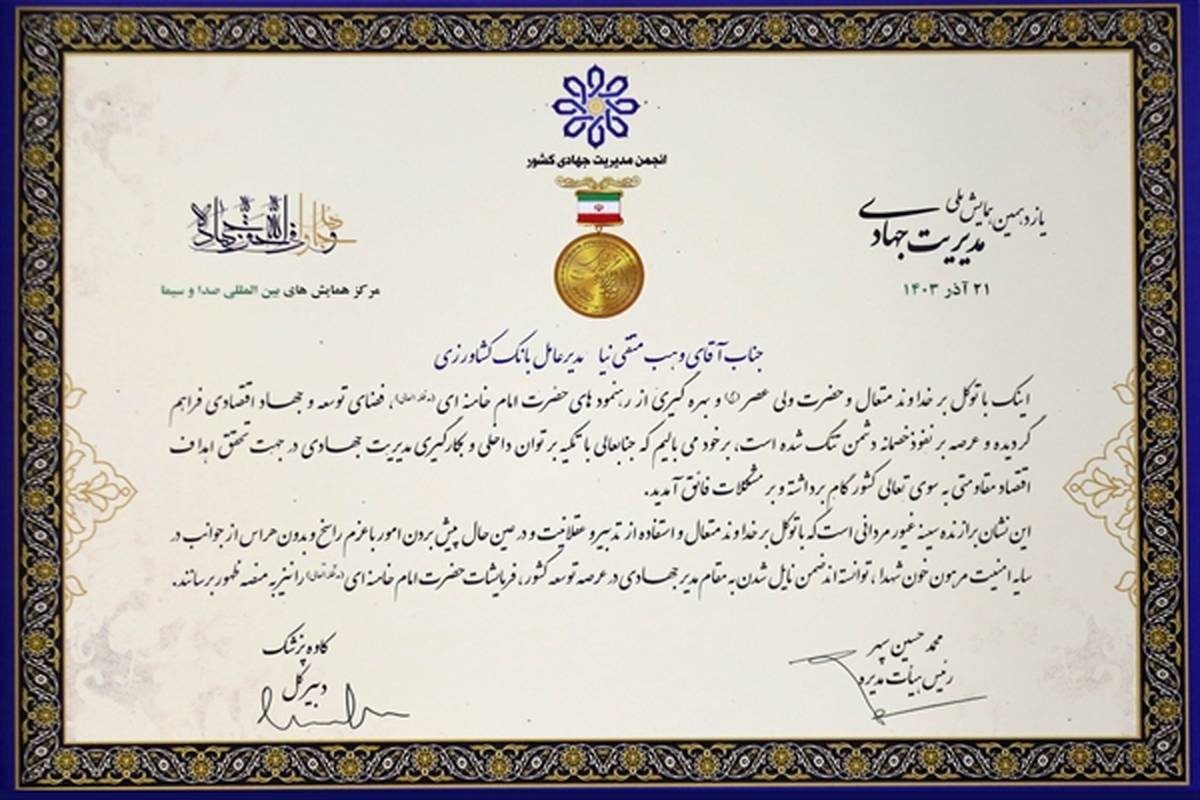 انجمن مدیریت جهادی کشور
یازدهمین همایش ملی
مدیریت جهادی
۲۱ آذر ۱۴۰۳
و جاهدوا فی الله حق جهاده
مرکز همایش های بین المللی صدا و سیما
جناب آقای وهب متقی نیا مدیرعامل بانک کشاورزی
اینک با توکل بر خداوند متعال و حضرت ولی عصر (عج) و بهره گیری از رهنمود های حضرت امام خامنه ای (مدظله العالی)، فضای توسعه و جهاد اقتصادی فراهم
گردیده و عرصه بر نفوذ خصمانه دشمن تنگ شده است، بر خود می بالیم که جنابعالی با تکیه بر توان داخلی و بکارگیری مدیریت جهادی در جهت تحقق اهداف
اقتصاد مقاومتی به سوی تعالی کشور گام برداشته و بر مشکلات فائق آمدید.
این نشان برازنده سینه غیور مردانی است که با توکل بر خداوند متعال و استفاده از تدبیر و عقلانیت و در عین حال پیش بردن امور با عزم راسخ و بدون هراس از جوانب در
سایه امنیت مرهون خون شهدا، توانسته اند ضمن نایل شدن به مقام مدیر جهادی در عرصه توسعه کشور، فرمایشات حضرت امام خامنه ای (مدظله العالی) را نیز به منصه ظهور برسانند.
محمد حسین سپهر
رئیس هیأت مدیره
کاوه پزشک
دبیر کل